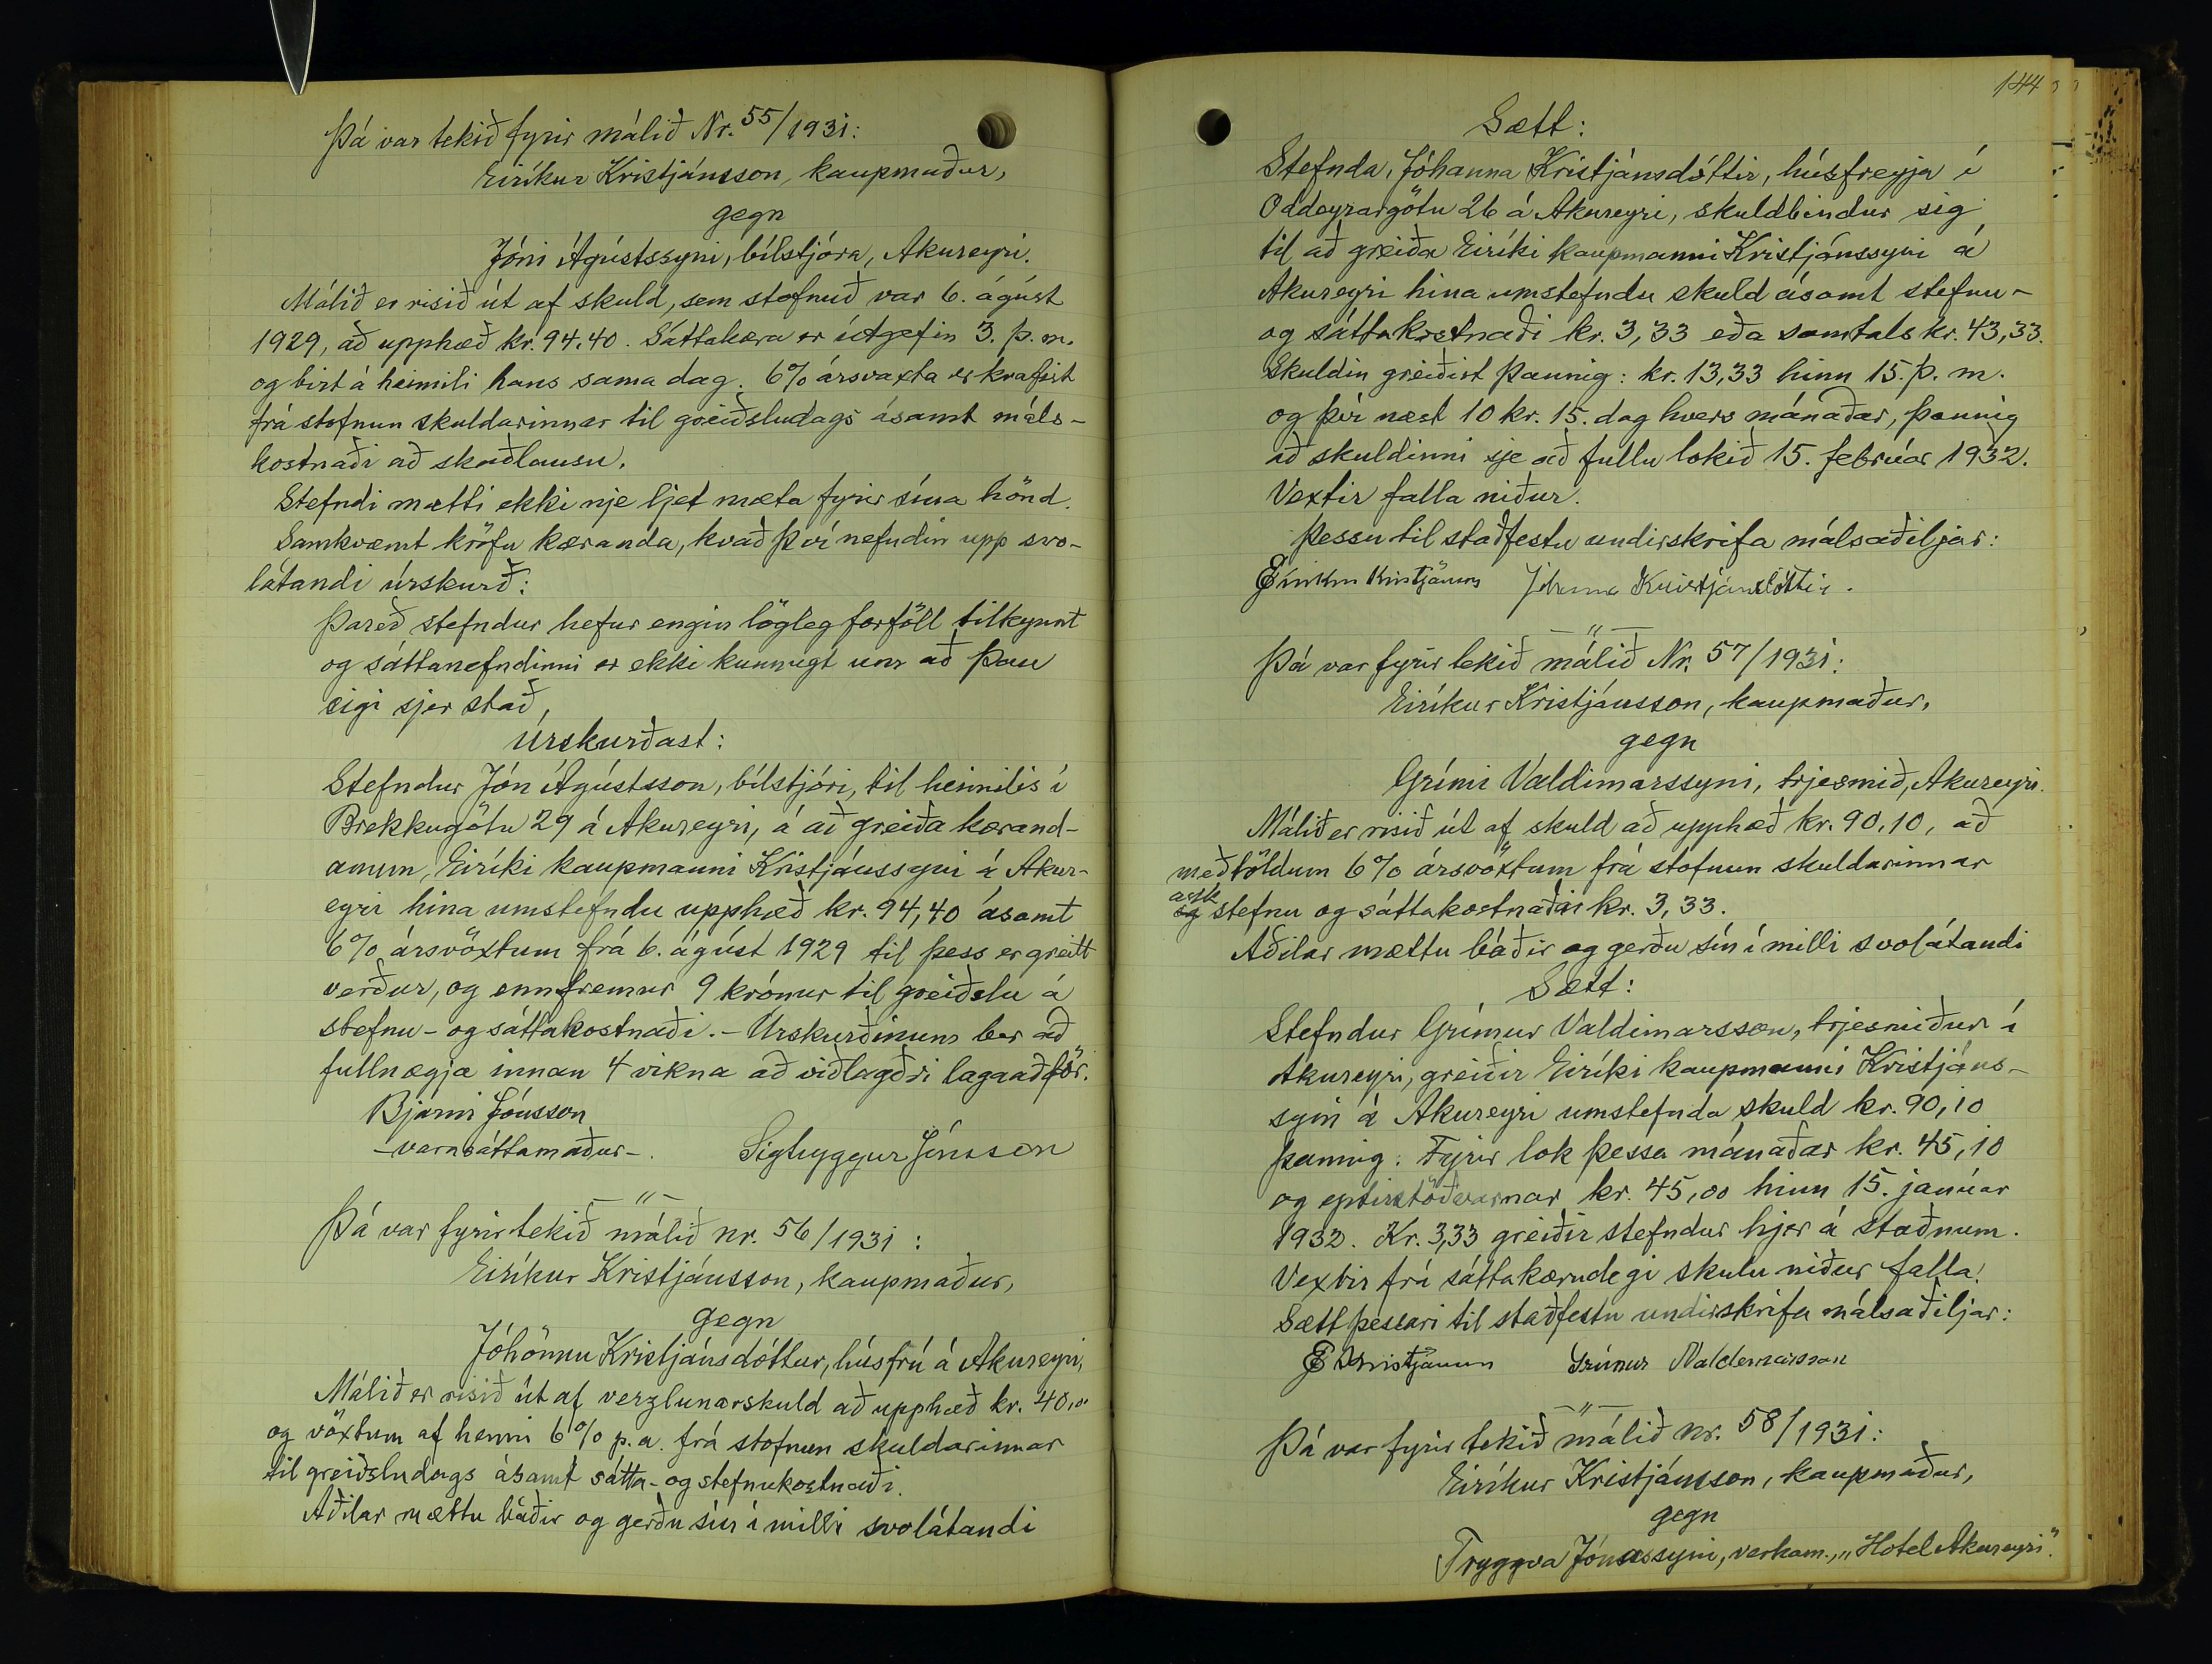 Þá var tekið fyrir málið Nr. 55/1931:
Eiríkur Kristjánsson, kaupmaður,
gegn
Jóni Ágústssyni, bílstjóra, Akureyri.
Málið er risið út af skuld, sem stofnuð var 6. ágúst
1929, að upphæð kr. 94.40. Sáttakæra er útgefin 3. þ.m.
og birt á heimili hans sama dag. 6% ársvaxta er krafist
frá stofnun skuldarinnar til greiðsludags ásamt máls-
kostnaði að skaðlausu.
Stefndi mætti ekki nje ljet mæta fyrir sína hönd.
Samkvæmt kröfu kæranda, kvað því nefndin upp svo-
látandi úrskurð:
Þareð stefndur hefur engin lögleg forföll tilkynnt
og sáttanefndinni er ekki kunnugt um að þau
eigi sjer stað,
Úrskurðast:
Stefndur Jón Ágústsson, bílstjóri, til heimilis í
Brekkugötu 29 á Akureyri, á að greiða kærand-
anum, Eiríki kaupmanni Kristjánssyni á Akur-
eyri hina umstefndu upphæð kr. 94,40 ásamt
6% ársvöxtum frá 6. ágúst 1929 til þess er greitt
verður, og ennfremur 9 krónur til greiðslu á
stefnu- og sáttakostnaði. - Úrskurðinum ber að
fullnægja innan 4 vikna að viðlagðri lagaaðför.
Bjarni Jónsson
-varasáttamaður-. Sigtryggur Jónsson
-"-
Þá var fyrir tekið málið nr. 56/1931:
Eiríkur Kristjánsson, kaupmaður,
gegn
Jóhönnu Kristjánsdóttur, húsfrú á Akureyri,
Málið er risið út af verzlunarskuld að upphæð kr. 40,00
og vöxtum af henni 6% p.a. frá stofnun skuldarinnar
til greiðsludags ásamt sátta- og stefnukostnaði.
Aðilar mættu báðir og gerðu sín í milli svolátandi
144
Sætt:
Stefnda, Jóhanna Kristjánsdóttir, húsfreyja í
Oddeyrargötu 26 á Akureyri, skuldbindur sig
til að greiða Eiríki kaupmanni Kristjánssyni á
Akureyri hina umstefndu skuld ásamt stefnu-
og sáttakostnaði kr. 3,33 eða samtals kr. 43,33.
Skuldin greiðist þannig: kr. 13,33 hinn 15. þ. m.
og því næst 10 kr. 15. dag hvers mánaðar, þannig
að skuldinni sje að fullu lokið 15. febrúar 1932.
Vextir falla niður.
Þessu til staðfestu undirskrifa málsaðiljar:
Eiríkur Kristjánsson Jóhanna Kristjánsdóttir.
-"-
Þá var fyrir tekið málið Nr. 57/1931:
Eiríkur Kristjánsson, kaupmaður,
gegn
Grími Valdimarssyni, trjesmið, Akureyri.
Málið er risið út af skuld að upphæð kr. 90,10, að
meðtöldum 6% ársvöxtum frá stofnun skuldarinnar
auk
og stefnu og sáttakostnaðar kr. 3,33.
Aðilar mættu báðir og gerðu sín í milli svolátandi
Sætt:
Stefndur Grímur Valdimarsson, trjesmiður í
Akureyri, greiðir Eiríki kaupmanni Kristjáns-
syni á Akureyri umstefnda skuld kr. 90,10
þannig: Fyrir lok þessa mánaðar kr. 45,10
og eptirstöðvarnar kr. 45,00 hinn 15. janúar
1932. Kr. 3,33 greiðir stefndur hjer á staðnum.
Vextir frá sáttakærudegi skulu niður falla.
Sætt þessari til staðfestu undirskrifa málsaðiljar:
E Kristjánsson Grímur Valdemarsson
-"-
Þá var fyrir tekið málið nr. 58/1931:
Eiríkur Kristjánsson, kaupmaður,
gegn
Tryggva Jónassyni, verkam., „Hotel Akureyri".